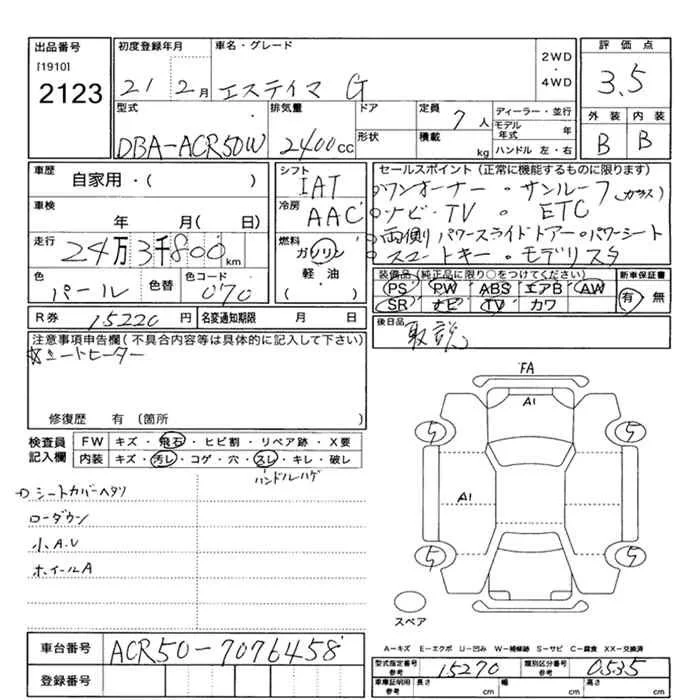 出品番号
[1910]
2123
初度登録年月
21 2月
車名・グレード
エスティマ G
2WD
・
4WD
評価点
3.5
外装 内装
B B
型式
DBA-ACR50W
排気量
2400cc
ドア
形状
定員
7人
積載
kg
ディーラー・並行
モデル年式 年
ハンドル 左・右
車歴
自家用・( )
車検
年 月( 日)
走行
24万3千800km
色
パール
色替
色コード
070
シフト
IAT
冷房
AAC
燃料
ガソリン
軽・油
( )
セールスポイント(正常に機能するものに限ります)
ワンオーナー・サンルーフ(ガラス)
ナビ・TV・ETC
両側パワースライドドアー・パワーシート
スマートキー・モデリスタ
装備品(純正品に限り○をつけてください)
PS PW ABS エアB AW
SR ナビ TV カワ
新車保証書
有・無
R券 15220円
名変通知期限 月 日
後日品
取説
注意事項申告欄(不具合内容等は具体的に記入して下さい)
シートヒーター
修復歴 有(箇所 )
検査員記入欄
FW キズ・飛石・ヒビ割・リペア跡・X要
内装 キズ・汚レ・コゲ・穴・スレ・キレ・破レ
ハンドルハゲ
シートカバーヘタリ
ローダウン
小A.U
ホイールA
FA
A1
5 5
A1
5 5
スペア
A-キズ E-エクボ U-凹み W-補修跡 S-サビ C-腐食 XX-交換済
車台番号
ACR50-7076458
登録番号
型式指定番号 参考
15270
類別区分番号 参考
0535
車庫証明用 参考
長さ cm
幅 cm
高さ cm